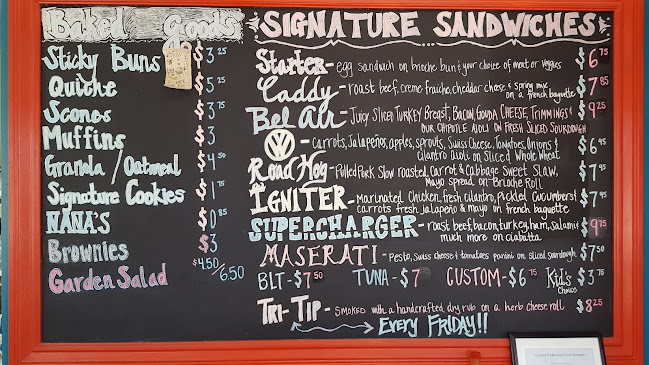 Baked Goods
Sticky Buns $3 25
Quiche $5 25
Scones $3 75
Muffins $3
Granola / Oatmeal $4 50
Signature Cookies $1 75
NANA'S $0 85
Brownies $3
Garden Salad $4.50/6.50
SIGNATURE SANDWICHES
Starter - egg sandwich on brioche bun & your choice of meat or veggies $6 75
Caddy - roast beef, creme fraiche, cheddar chese & spring mix on a french baguette $7 85
Bel Air - Juicy Sliced TURKEY Breast, Bacon, Gouda CHEESE, Trimmings & our chipotle aioli on fresh sliced sourdough $9 25
VW - carrots, Jalapeños, apples, sprouts, Swiss Cheese, Tomatoes, Onions & cilantro aioli on sliced whole wheat $6 95
Road Hog - Pulled Pork slow roasted, carrot & cabbage sweet slaw, mayo spread on Brioche Roll $7 95
IGNITER - marinated chicken, fresh cilantro, pickled cucumbers & carrots fresh jalapeño & mayo on french baguette $7 95
SUPERCHARGER - roast beef, bacon, turkey, ham, salami & much more on ciabatta $9 75
MASERATI - Pesto, swiss cheese & tomatoes panini on sliced sourdough $7 50
BLT - $7 50 TUNA - $7 CUSTOM - $6 75 Kid's Choice $3 75
TRI-TIP - smoked with a handcrafted dry rub on a herb cheese roll $8 25
EVERY FRIDAY!!